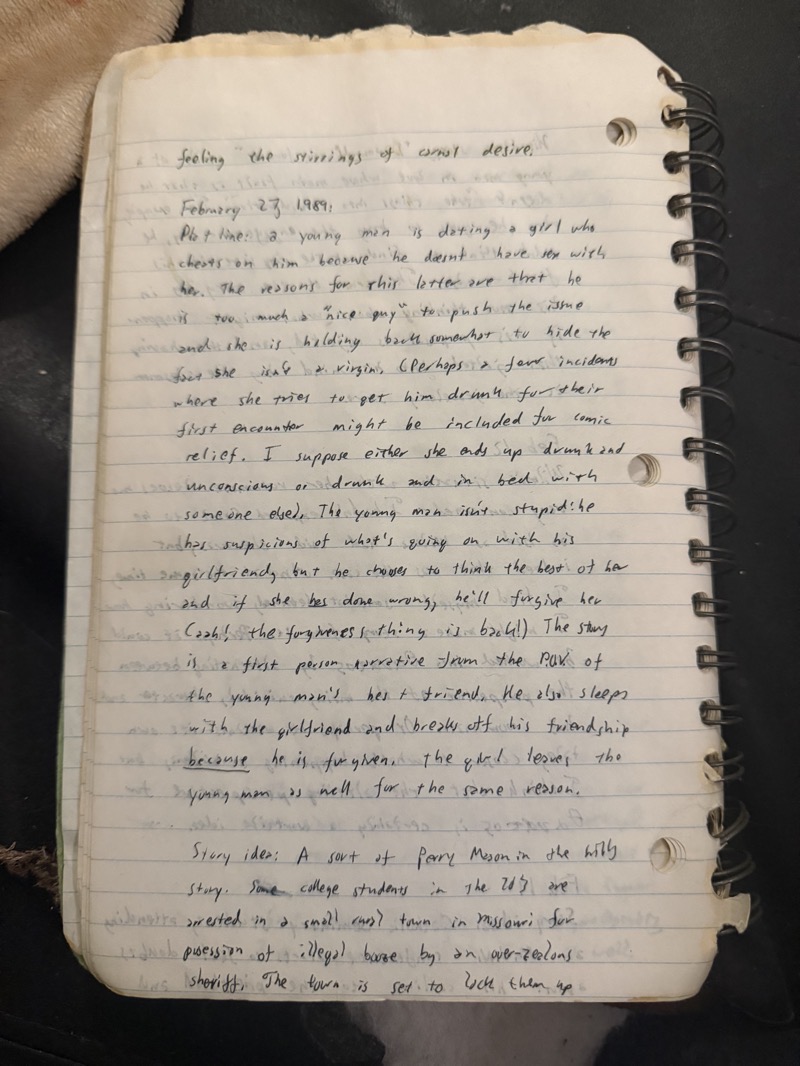 feeling "the stirrings of carnal desire.
February 27, 1989:
Plot line: a young man is dating a girl who
cheats on him because he doesnt have sex with
her. The reasons for this latter are that he
is too much a "nice guy" to push the issue
and she is holding back somewhat to hide the
fact she isn't a virgin. (Perhaps a few incidents
where she tries to get him drunk for their
first encounter might be included for comic
relief. I suppose either she ends up drunk and
unconscious or drunk and in bed with
someone else). The young man isn't stupid: he
has suspicions of what's going on with his
girlfriend, but he chooses to think the best of her
and if she has done wrong, he'll forgive her
(aah! the forgiveness thing is back!) The story
is a first person narrative from the P.O.V. of
the young man's best friend. He also sleeps
with the girlfriend and breaks off his friendship
because he is forgiven. The girl leaves the
young man as well for the same reason.
Story idea: A sort of Perry Mason in the
story. Some college students in the 20's are
arrested in a small rural town in Missouri for
posession of illegal booze by an over-zealous
sheriff. The town is set to lock them up